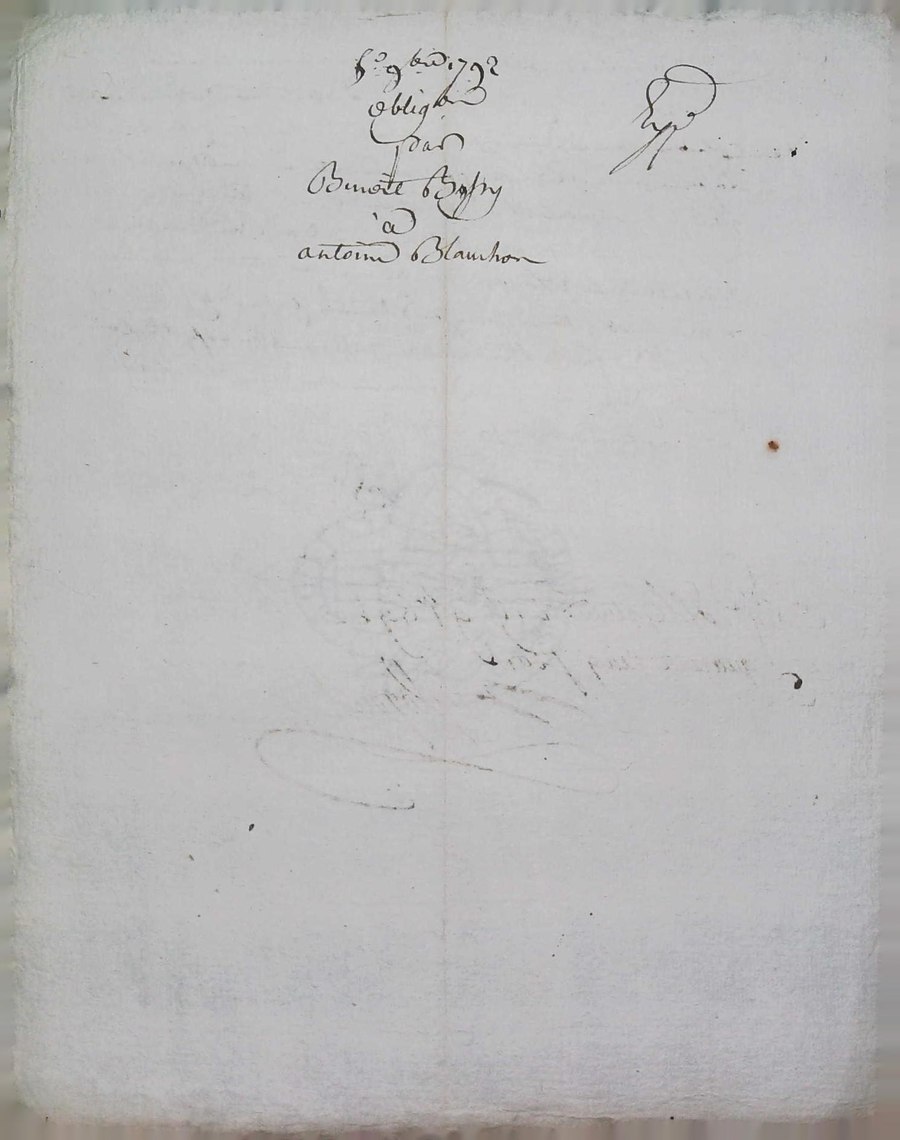 6e 9bre 1792
obligon
par
Benoit Bossy
à
antoine Blanchon
Expé